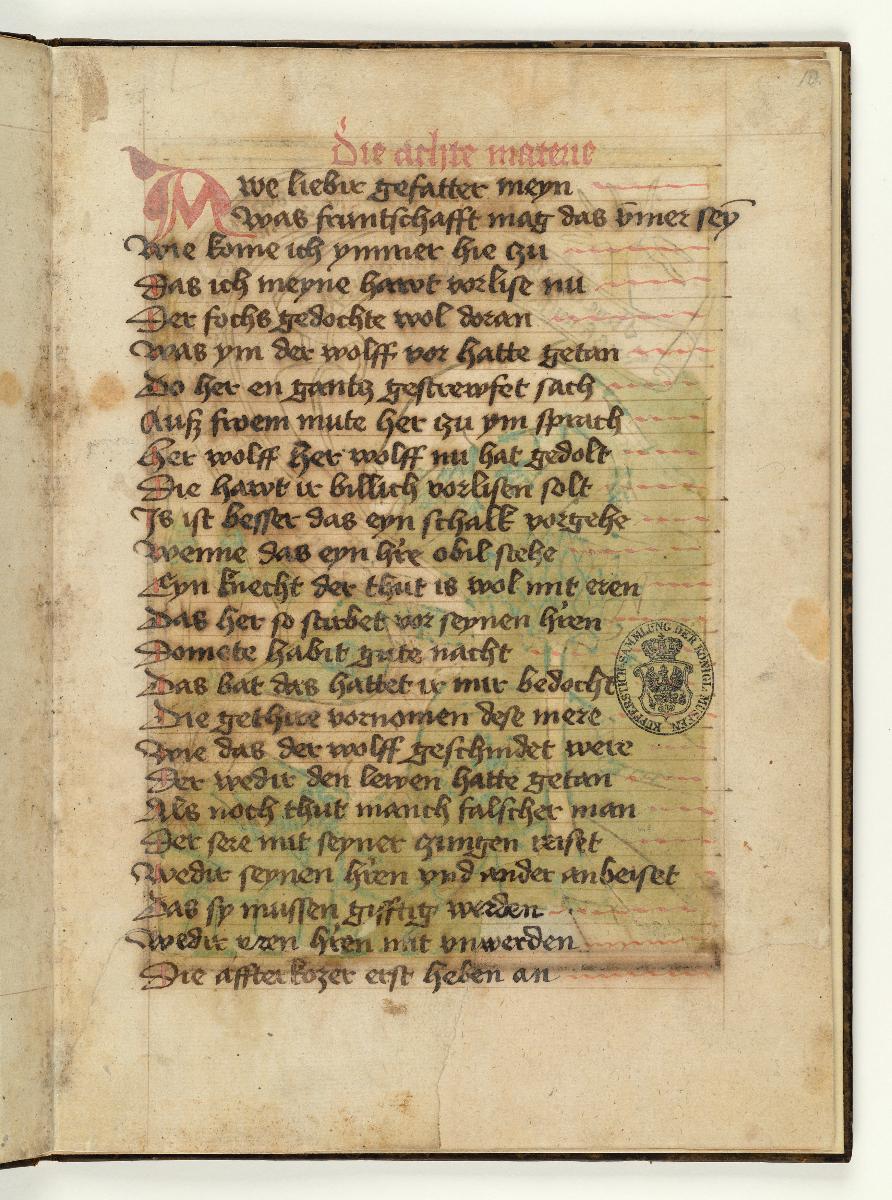 10.
Die achte materie
Awe liebir gefatter meyn
Was fruntschafft mag das ȳmer sey̅
Wie kome ich ymmer hie czu
Das ich meyne hawt vorlise nu
Der fochs gedochte wol doran
Was ym der wolff vor hatte getan
Do her en gantz gestrewfet sach
Auß froem mute her czu ym sprach
Her wolff her wolff nu hat gedolt
Die hawt ir billich vorlisen solt
Is ist besser das eyn schalk vorgehe
Wenne das eyn h're obil stehe
Eyn knecht der thut is wol mit eren
Das her so starbet vor seynen h'ren
Domete habit gute nacht
Das bat das hattet ir mir bedocht
Die gethire vornomen dese mere
Wie das der wolff geschindet were
Der wedir den lewen hatte getan
Als noch thut manch falscher man
Der sere mit seyner czungen reiset
Wedir seynen h'ren vnd ander anbeiset
Das sy mussen gifftig werden
Wedir eren h'ren mit vnwerden
Die affterkozer erst heben an
KUPFERSTICH-SAMMLUNG DER KÖNIGL. MUSEEN